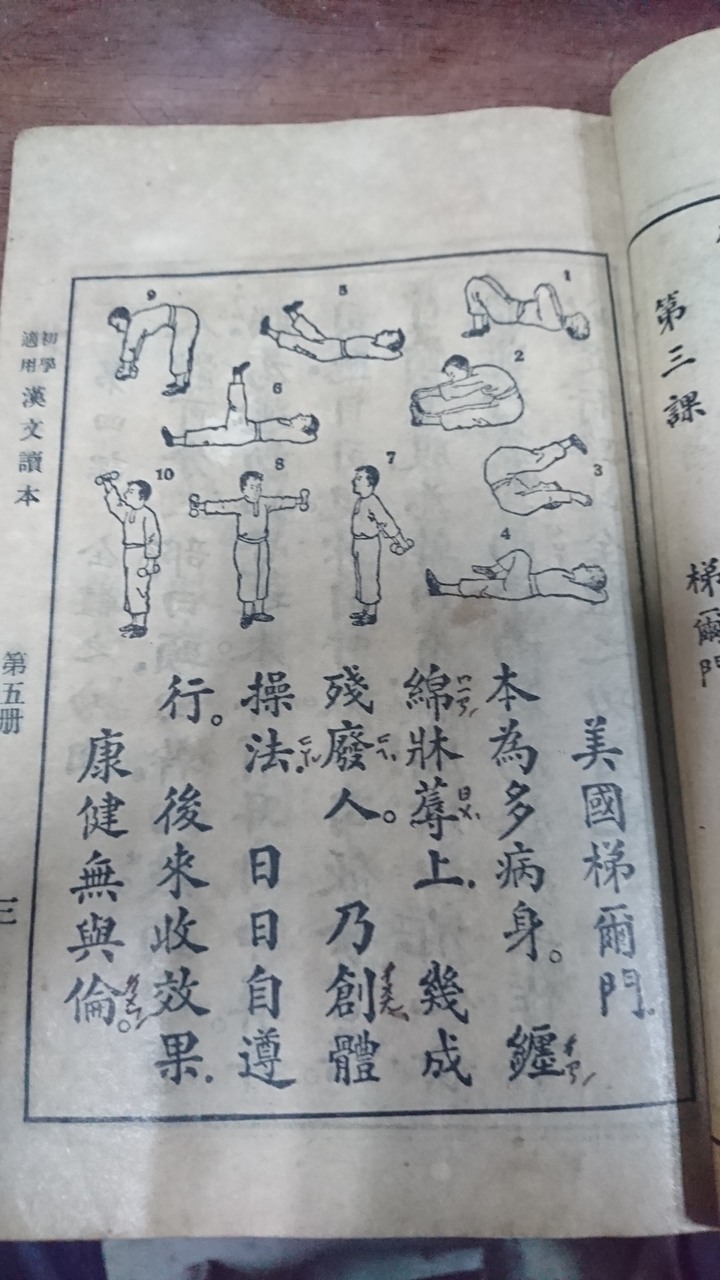 第三課 梯爾門
1
2
3
4
5
6
7
8
9
10
美國梯爾門.
本為多病身。 纏
綿牀蓐上. 幾成
殘廢人。 乃創體
操法. 日日自遵
行。 後來收效果.
康健無與倫。
初學適用漢文讀本 第五册 三